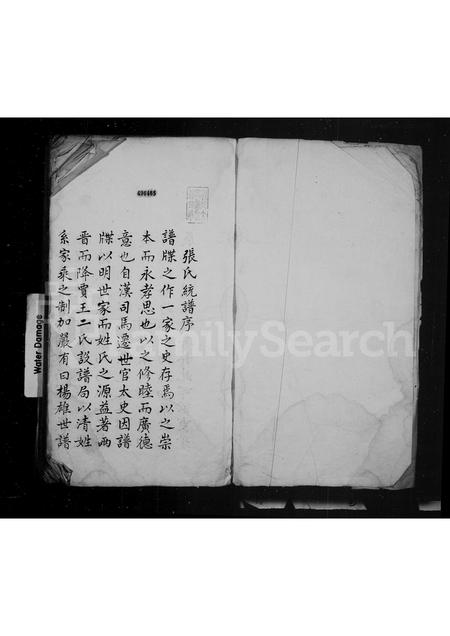 張氏統譜序
譜牒之作一家之史存焉以之崇
本而永孝思也以之修睦而廣德
意也自漢司馬遷世官太史因譜
牒以明世家而姓氏之源益著兩
晉而降賈王二氏設譜局以清姓
系家乘之制加嚴有曰楊雄世譜
696465
Water Damage
FamilySearch